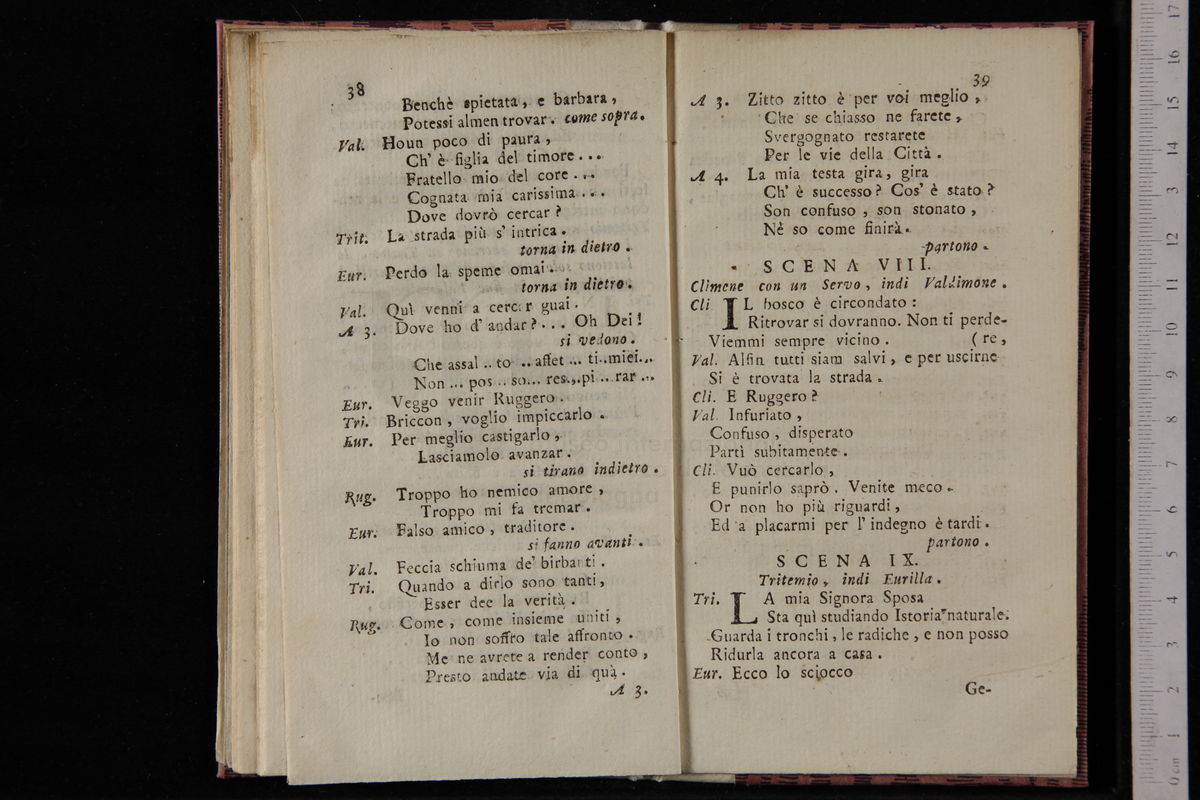 38
Benchè spietata, e barbara,
Potessi almen trovar. come sopra.
Val. Houn poco di paura,
Ch' è figlia del timore...
Fratello mio del core...
Cognata mia carissima...
Dove dovrò cercar?
Trit. La strada più s' intrica.
torna in dietro.
Eur. Perdo la speme omai.
torna in dietro.
Val. Quì venni a cercar guai.
A 3. Dove ho d' andar?... Oh Dei!
si vedono.
Che assal.. to.. affet... ti..miei...
Non... pos.. so... res...pi...rar...
Eur. Veggo venir Ruggero.
Tri. Briccon, voglio impiccarlo.
Eur. Per meglio castigarlo,
Lasciamolo avanzar.
si tirano indietro.
Rug. Troppo ho nemico amore,
Troppo mi fa tremar.
Eur. Falso amico, traditore.
si fanno avanti.
Val. Feccia schiuma de' birbanti.
Tri. Quando a dirlo sono tanti,
Esser dee la verità.
Rug. Come, come insieme uniti,
Io non soffro tale affronto.
Me ne avrete a render conto,
Presto andate via di quà.
A 3.
39
A 3. Zitto zitto è per voi meglio,
Che se chiasso ne farete,
Svergognato restarete
Per le vie della Città.
A 4. La mia testa gira, gira
Ch' è successo? Cos' è stato?
Son confuso, son stonato,
Nè so come finirà.
partono.
SCENA VIII.
Climene con un Servo, indi Valdimone.
Cli IL bosco è circondato:
Ritrovar si dovranno. Non ti perde-
Viemmi sempre vicino. (re,
Val. Alfin tutti siam salvi, e per uscirne
Si è trovata la strada.
Cli. E Ruggero?
Val. Infuriato,
Confuso, disperato
Partì subitamente.
Cli. Vuò cercarlo,
E punirlo saprò. Venite meco.
Or non ho più riguardi,
Ed a placarmi per l' indegno è tardi.
partono.
SCENA IX.
Tritemio, indi Eurilla.
Tri. LA mia Signora Sposa
Sta quì studiando Istoria naturale.
Guarda i tronchi, le radiche, e non posso
Ridurla ancora a casa.
Eur. Ecco lo sciocco
Ge-
0 cm 1 2 3 4 5 6 7 8 9 10 11 12 13 14 15 16 17